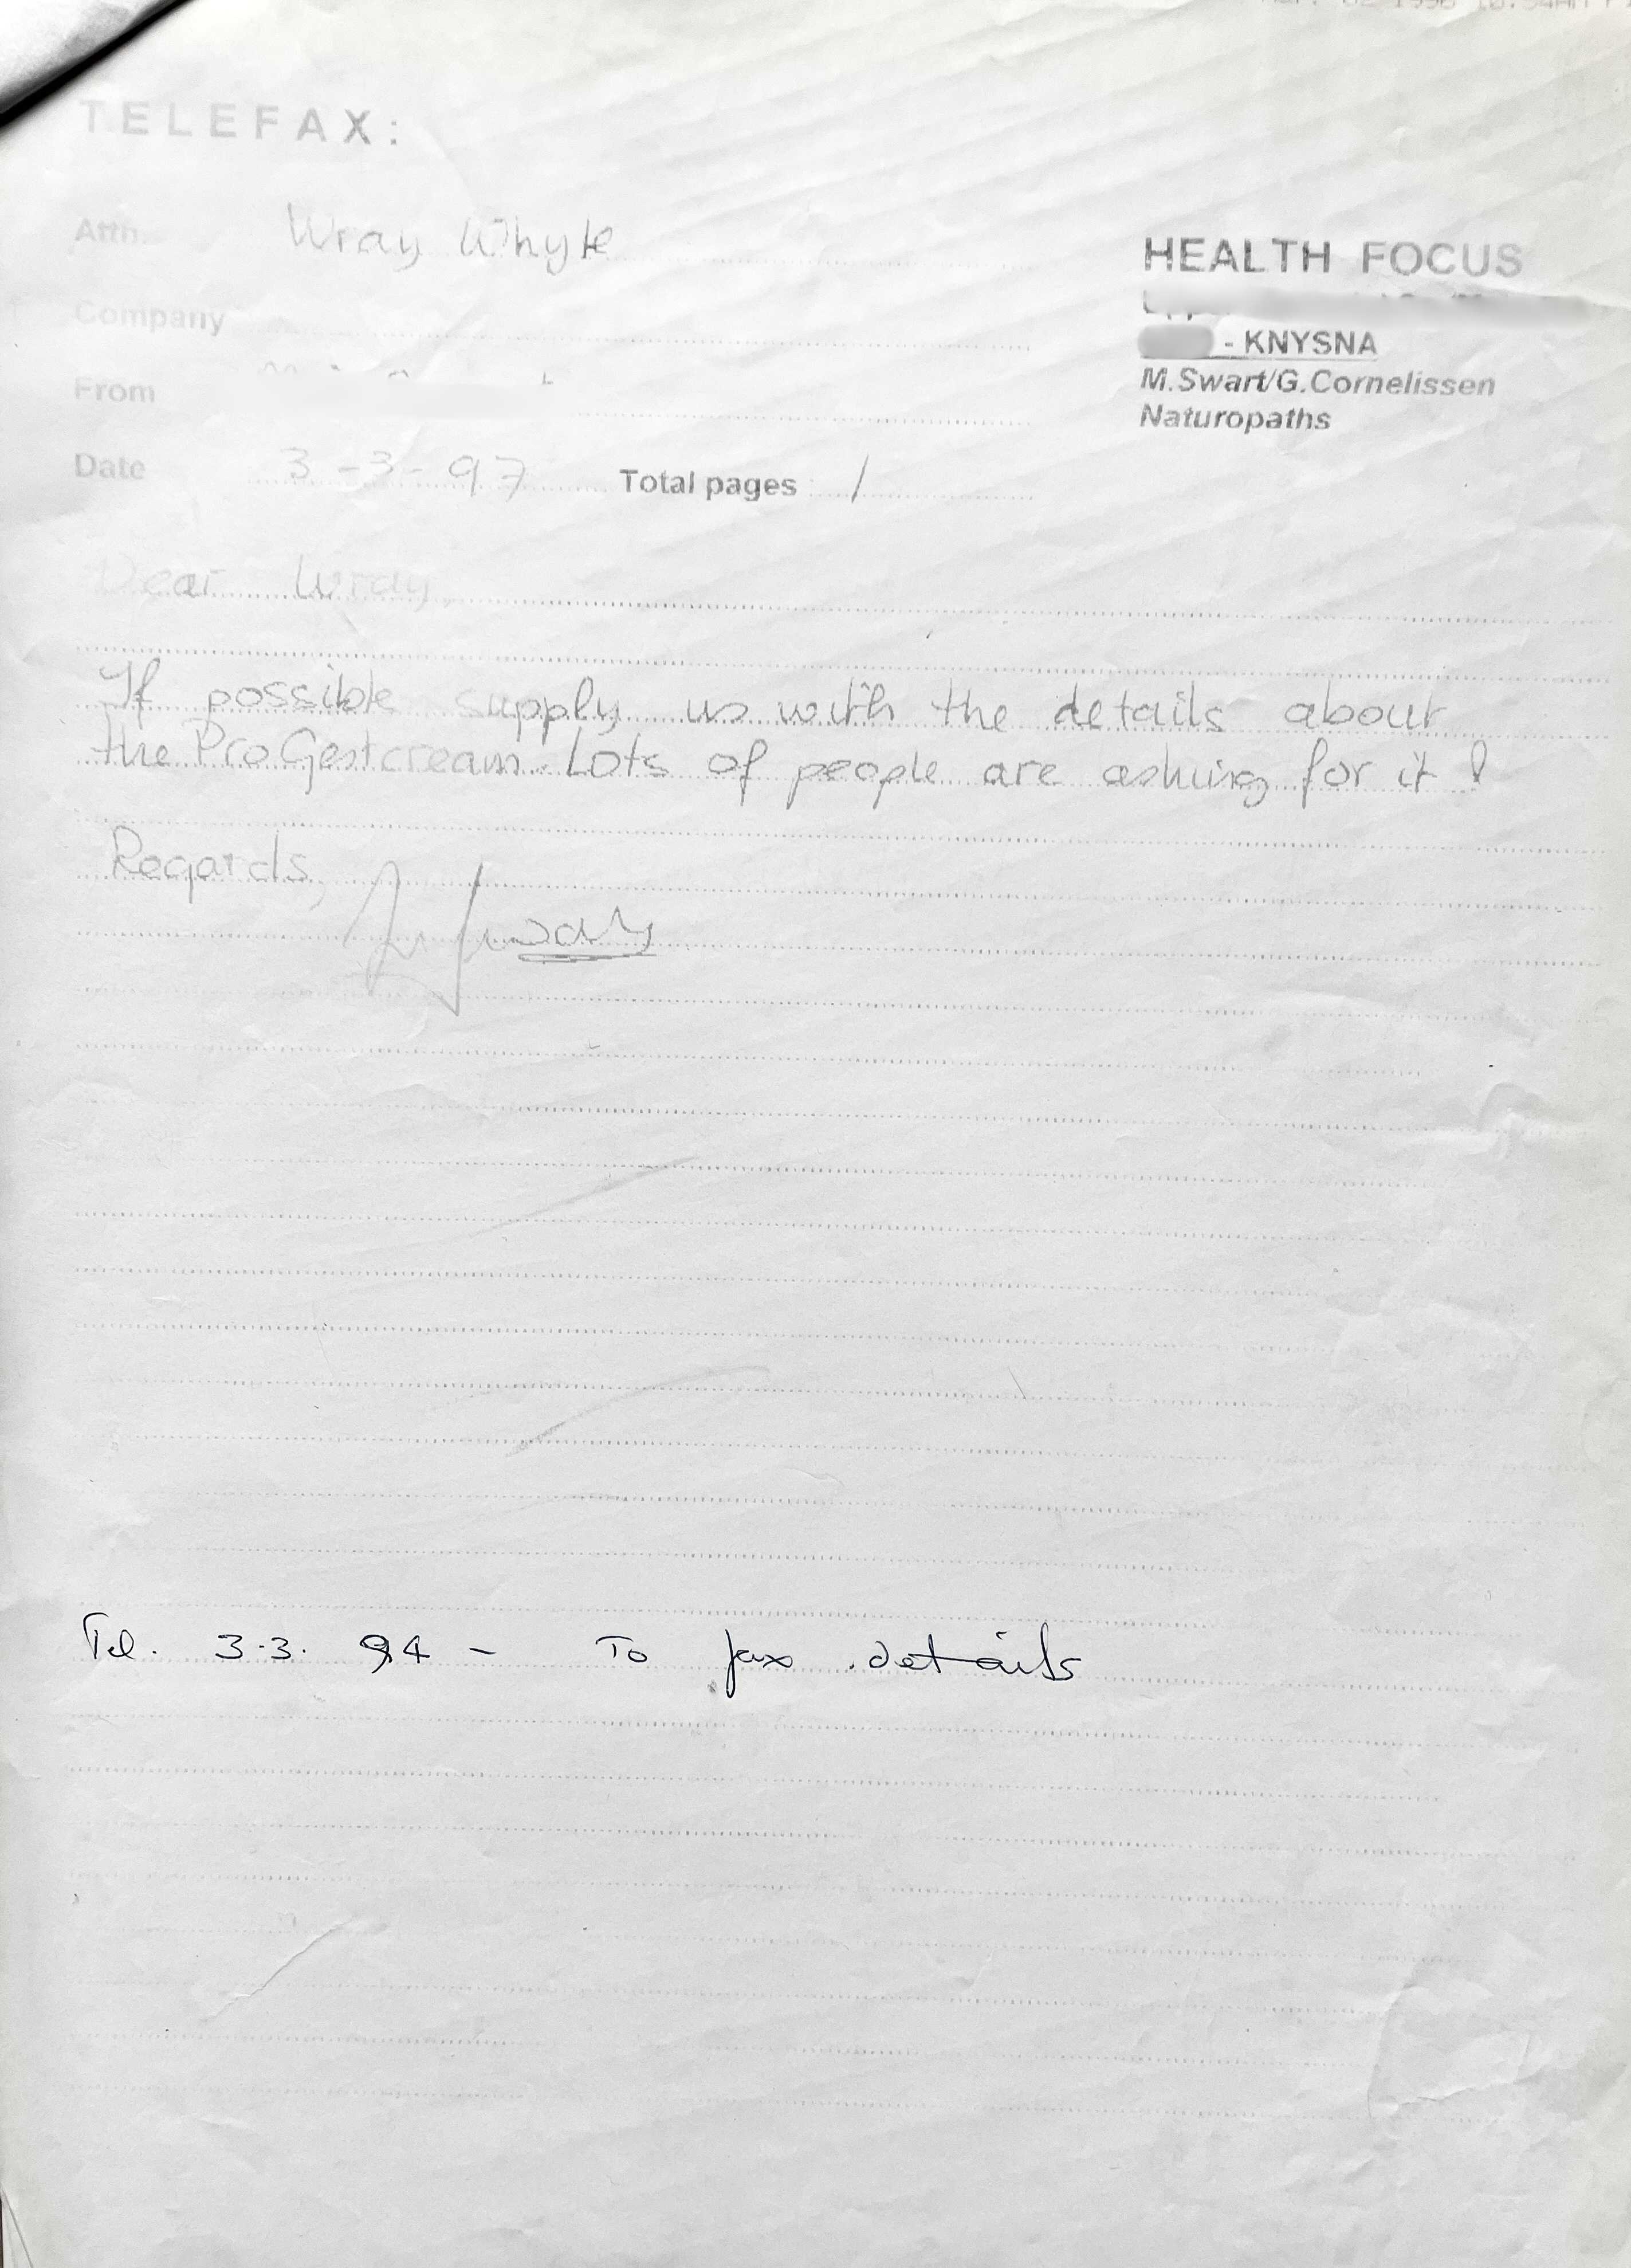 TELEFAX:
Attn. Wray Whyte
HEALTH FOCUS
Company
- KNYSNA
From
M.Swart/G.Cornelissen
Naturopaths
Date 3-3-97 Total pages 1
Dear Wray,
If possible supply us with the details about
the ProGestcream. Lots of people are asking for it !
Regards,
Tel. 3.3. 94 - To fax details